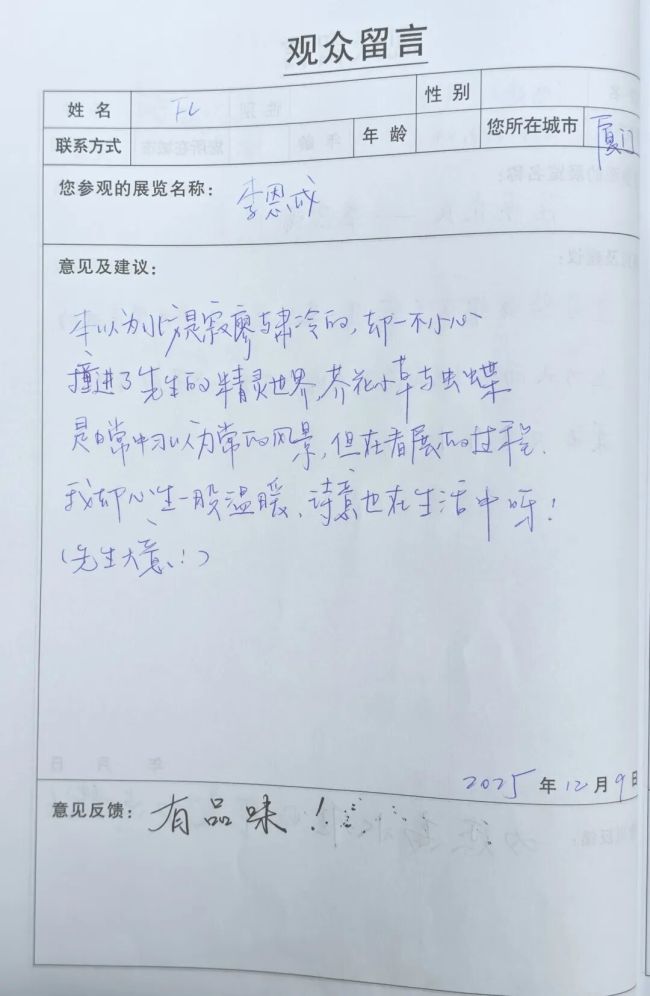 观众留言
姓名 FL 性别
联系方式 年龄 您所在城市 厦门
您参观的展览名称: 李恩成
意见及建议:
本以为北方是寂寥与肃冷的,却一不小心
撞进了先生的精灵世界,芥花小草与虫蝶
是日常中习以为常的风景,但在看展的过程.
我却心生一股温暖,诗意也在生活中呀!
(先生大意!)
2025年12月9日
意见反馈: 有品味!